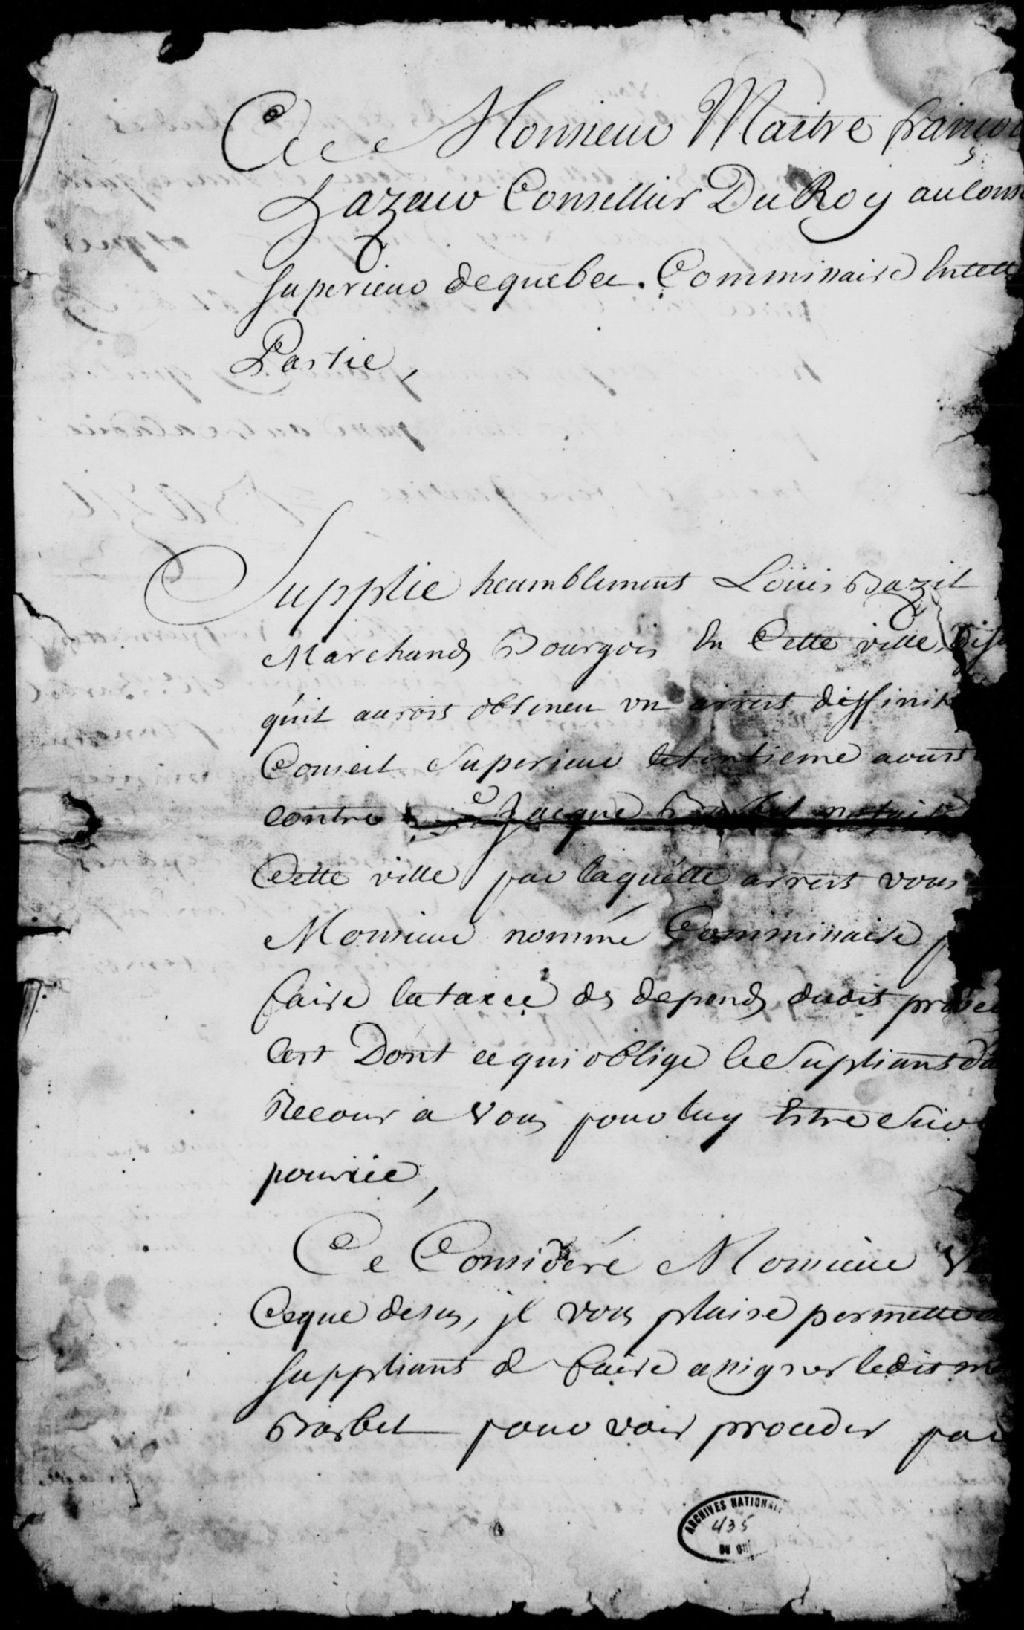 A Monsieur Maitre françoi
hazeur Consellier Du Roy au Cons
superieur de quebec. Commissaire En cette
Partie,
Supplie heumblement Loüis Bazil
Marchand Bourgois En Cette ville Dis
quil aurois obteneu un arrest diffinit
Conseil Superieur le tentieme aoust
contre Me Jacque Barbel notaire
Cette ville par laquelle arrest vous
Monsieur nommé Commissaire p
faire la taxce des depends dudit proce
Cest Dont ce qui oblige le Supliant Da
Recour a Vous pour luy Estre Sur
pourvée,
Ce Consideré Monsieur V
Ceque desus, jl vous plaise permettre
suppliant de faire assigner ledit m
Barbel pour voir proceder par
ARCHIVES NATIONALES
435
DU QU